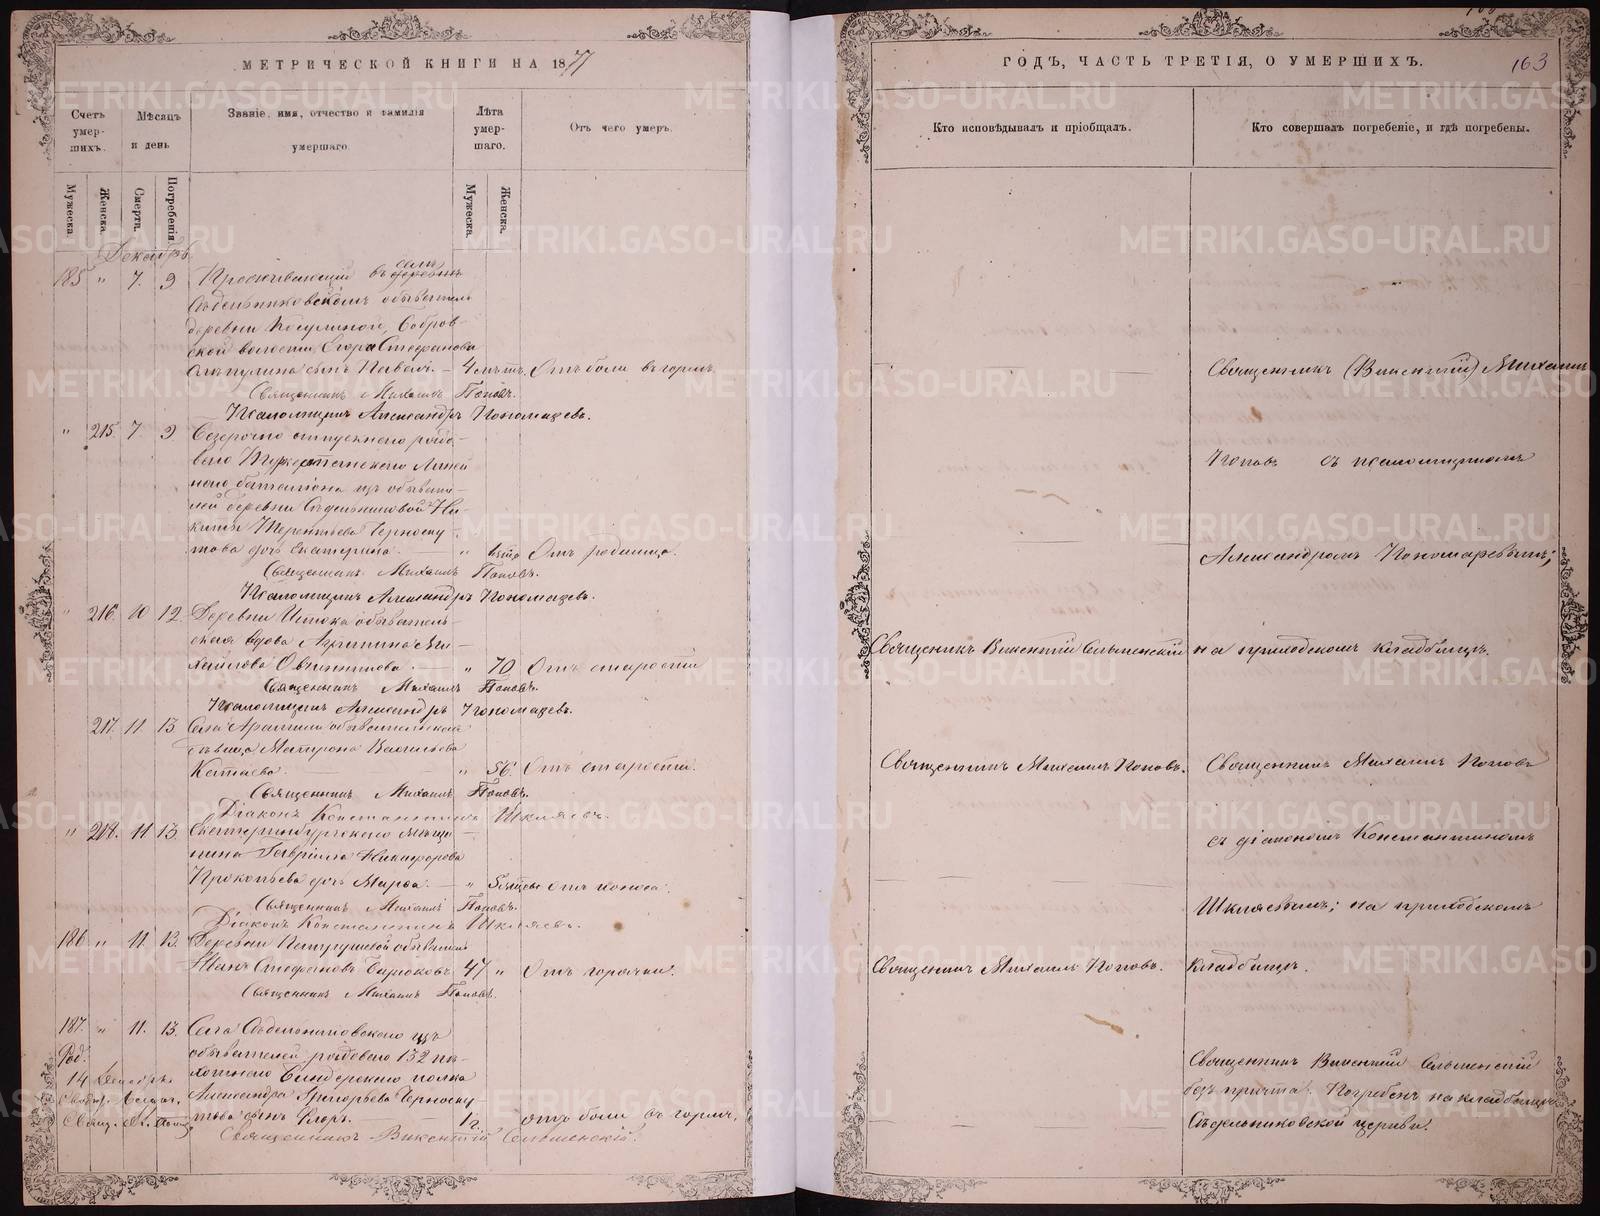 МЕТРИЧЕСКОЙ КНИГИ НА 1877
Счетъ умер-шихъ.
Мѣсяцъ и день
Званіе, имя, отчество и фамилія умершаго.
Лѣта умер-шаго.
Отъ чего умеръ.
Мужеска.
Женска.
Смерти.
Погребенія.
Мужеска.
Женска.
Декабрь
185 " 7. 9 Проживающій въ селѣ
Сѣдельниковскомъ обыватель
деревни Косулиной, Бобров-
ской волости, Егора Стефанова
сынъ Павелъ. — 4 лѣтъ. Отъ боли въ горлѣ
Священникъ Михаилъ Поповъ.
Псаломщикъ Александръ Пономаревъ.
" 215. 7. 9 Безсрочно отпускнаго рядо-
ваго Туркестанскаго Линей
наго баталіона изъ обывате-
лей деревни Сѣдельниковой Ни-
киты Терентьева Черноску-
това дочь Екатерина. — " Отъ родимца.
Священникъ Михаилъ Поповъ.
Псаломщикъ Александръ Пономаревъ.
" 216. 10 12. Деревни Истока обыватель-
ская вдова Агрипина Ми-
хайлова Овчинникова. — " 70. Отъ старости
Священникъ Михаилъ Поповъ.
Псаломщикъ Александръ Пономаревъ.
217. 11. 13 Села Арамили обывательская
дѣвица Матрона Васильева
Катаева. " 56. Отъ старости.
Священникъ Михаилъ Поповъ.
Діаконъ Константинъ Шкляевъ.
" 218. 11. 13. Екатеринбургскаго мѣща-
нина Гавріила Никифорова
Прокопьева дочь Марѳа. — " Отъ поноса.
Священникъ Михаилъ Поповъ.
Діаконъ Константинъ Шкляевъ.
186 " 11. 13. Деревни Петрушевой обыватель
Иванъ Стефановъ Бирюковъ 47 " Отъ горячки.
Священникъ Михаилъ Поповъ.
187. " 11. 13. Села Сѣдельниковскаго изъ
обывателей, рядоваго 132 пѣ-
хотнаго Бендерскаго полка
Александра Григорьева Черноску-
това сынъ Егоръ. 1 г. отъ боли въ горлѣ.
Род.
14 Декабря
Священникъ Викентій Сельменскій.
ГОДЪ, ЧАСТЬ ТРЕТІЯ, О УМЕРШИХЪ.
163
Кто исповѣдывалъ и пріобщалъ.
Кто совершалъ погребеніе, и гдѣ погребены.
Священникъ (Викентій) Михаилъ
Поповъ съ псаломщикомъ
Александромъ Пономаревымъ;
Священникъ Викентій Сельменскій на приходскомъ кладбищѣ.
Священникъ Михаилъ Поповъ. Священникъ Михаилъ Поповъ
съ діакономъ Константиномъ
Шкляевымъ; на приходскомъ
Священникъ Михаилъ Поповъ. кладбищѣ.
Священникъ Викентій Сельменскій
безъ причта. Погребенъ на кладбищѣ
Сѣдельниковской церкви.
METRIKI.GASO-URAL.RU